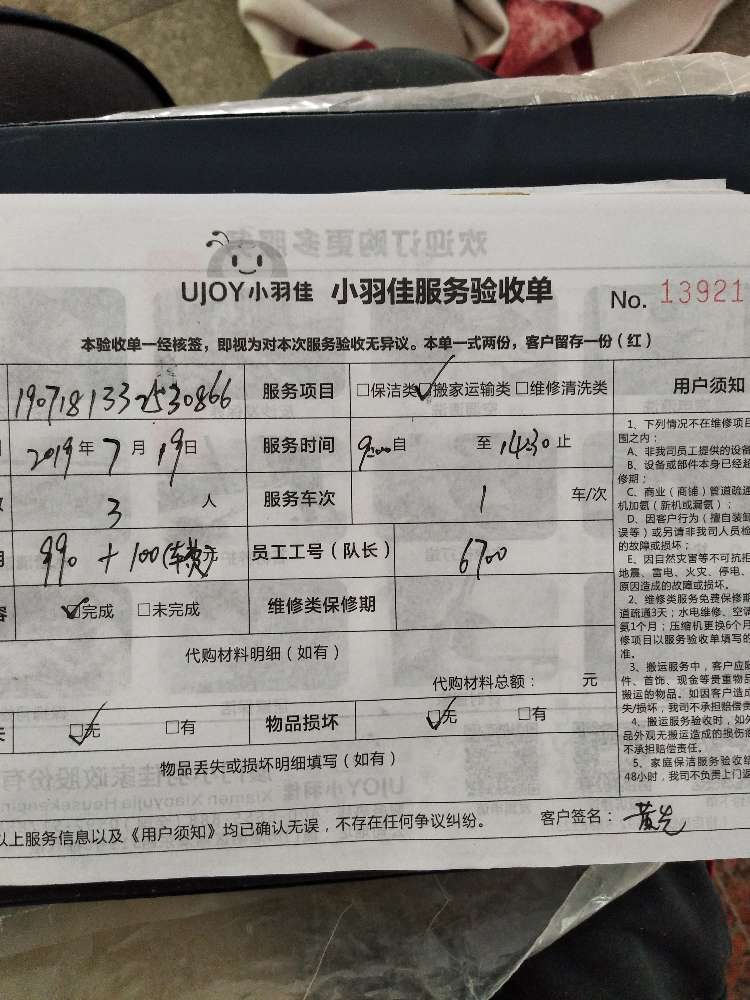 欢迎订购更多服务
UJOY小羽佳 小羽佳服务验收单 No. 13921
本验收单一经核签，即视为对本次服务验收无异议。本单一式两份，客户留存一份（红）
1907181332530866 服务项目 □保洁类 ☑搬家运输类 □维修清洗类 用户须知
2019年7月19日 服务时间 9:00自 至14:30止
3 人 服务车次 1 车/次
990+100(车费)元 员工工号（队长） 6700
☑完成 □未完成 维修类保修期
代购材料明细（如有）
代购材料总额： 元
☑无 □有 物品损坏 ☑无 □有
物品丢失或损坏明细填写（如有）
以上服务信息以及《用户须知》均已确认无误，不存在任何争议纠纷。 客户签名：
1、下列情况不在维修项目
围之内：
A、非我司员工提供的设备
B、设备或部件本身已经超
修期；
C、商业（商铺）管道疏通
机加氨（新机或漏氨）；
D、因客户行为（擅自装卸
误等）或另请非我司人员检
的故障或损坏；
E、因自然灾害等不可抗拒
地震、雷电、火灾、停电、
原因造成的故障或损坏。
2、维修类服务免费保修期
道疏通3天；水电维修、空调
氨1个月；压缩机更换6个月
修项目以服务验收单填写的
准。
3、搬运服务中，客户应
件、首饰、现金等贵重物品
搬运的物品。如因客户造成
失/损坏，我司不承担赔偿责
4、搬运服务验收时，如外
品外观无搬运造成的损伤
不承担赔偿责任。
5、家庭保洁服务验收结
48小时，我司不负责上门返